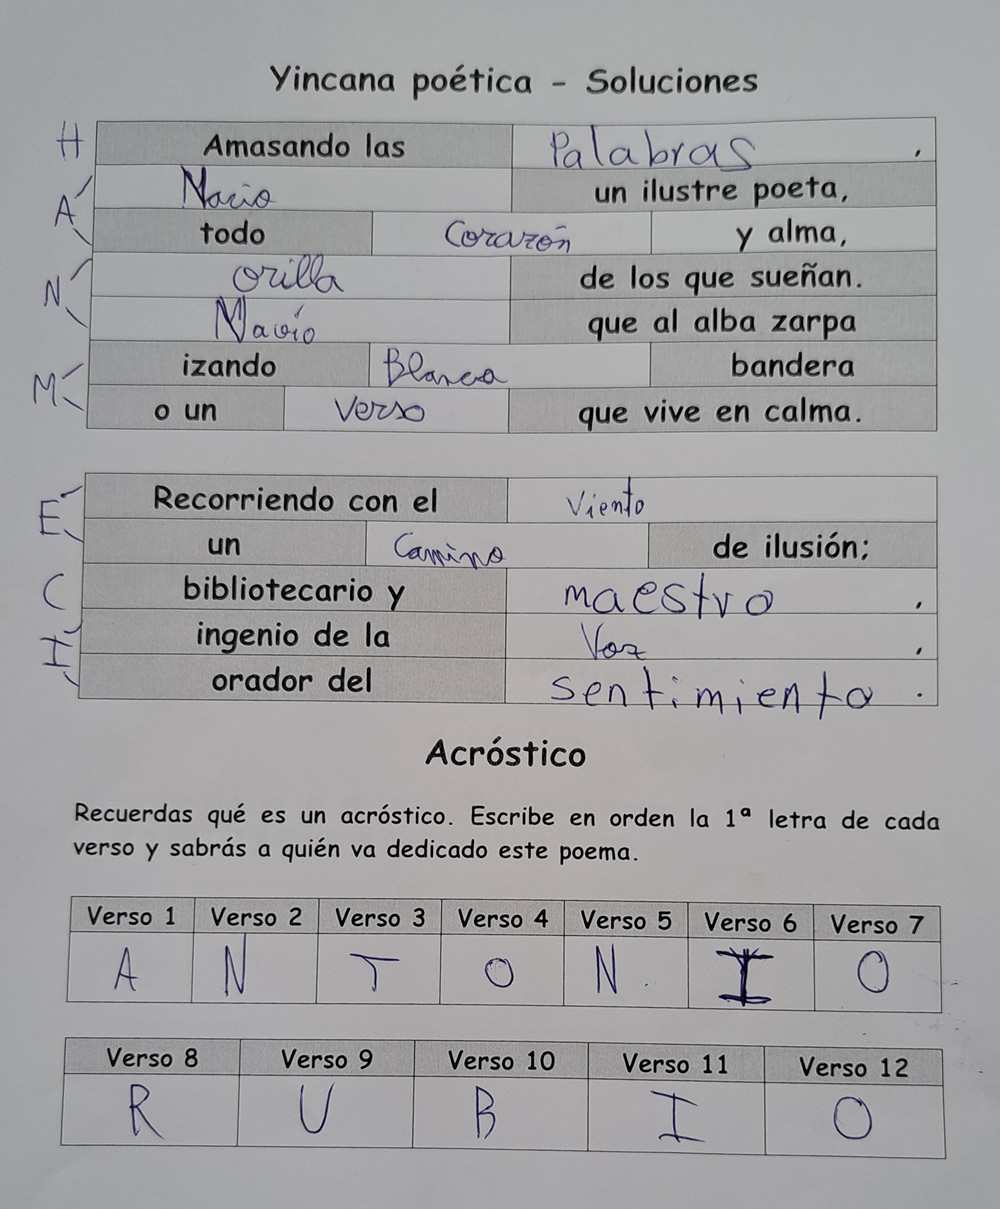 Yincana poética - Soluciones
H Amasando las Palabras ,
Nacio un ilustre poeta,
A todo Corazón y alma,
orilla de los que sueñan.
N Navío que al alba zarpa
izando Blanca bandera
M o un Verso que vive en calma.
Recorriendo con el Viento
E un Camino de ilusión;
C bibliotecario y maestro ,
I ingenio de la Voz ,
orador del sentimiento .
Acróstico
Recuerdas qué es un acróstico. Escribe en orden la 1ª letra de cada
verso y sabrás a quién va dedicado este poema.
Verso 1 Verso 2 Verso 3 Verso 4 Verso 5 Verso 6 Verso 7
A N T O N I O
Verso 8 Verso 9 Verso 10 Verso 11 Verso 12
R U B I O